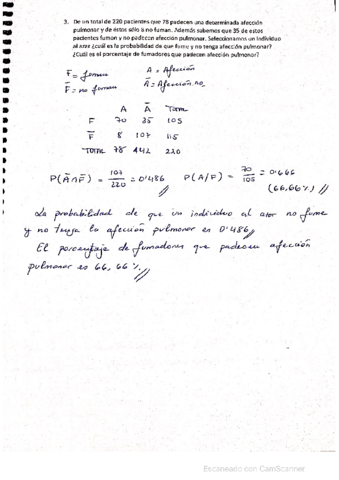 3. De un total de 220 pacientes que 78 padecen una determinada afección
pulmonar y de éstos sólo 8 no fuman. Además sabemos que 35 de estos
pacientes fuman y no padecen afección pulmonar. Seleccionamos un individuo
al azar ¿cuál es la probabilidad de que fume y no tenga afección pulmonar?
¿Cuál es el porcentaje de fumadores que padecen afección pulmonar?
F = fuman A = Afección
F̄ = no fuman Ā = Afección no
A Ā Total
F 70 35 105
F̄ 8 107 115
Total 78 142 220
P(Ā∩F̄) = 107/220 = 0'486 P(A/F) = 70/105 = 0'666
(66,66%)
La probabilidad de que un individuo al azar no fume
y no tenga la afección pulmonar es 0'486
El porcentaje de fumadores que padecen afección
pulmonar es 66,66%
Escaneado con CamScanner